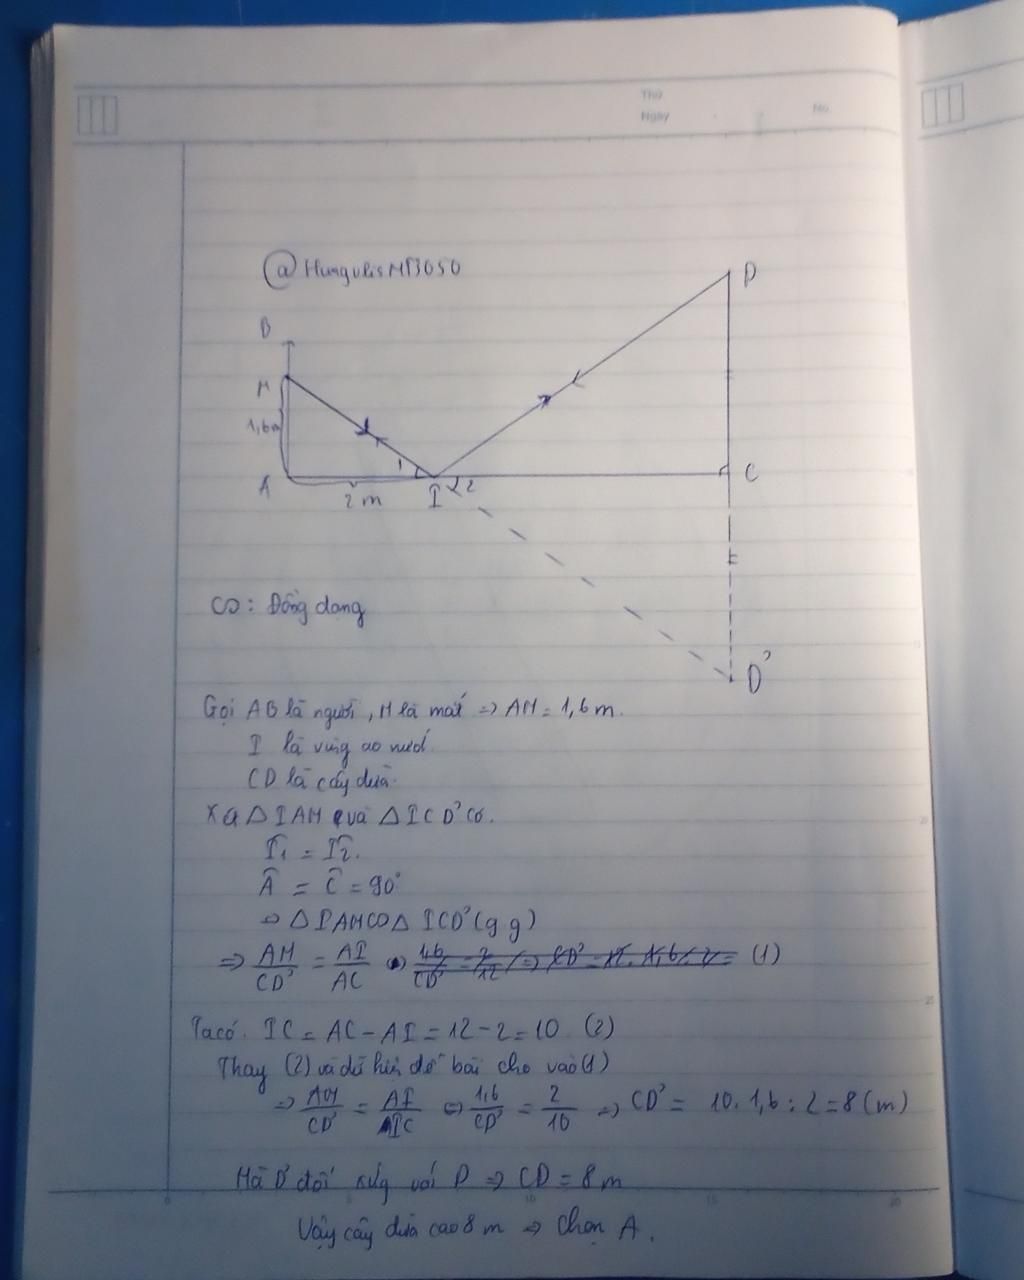 Thứ
Ngày
No.
@HungulisMB3050
D
B
M
1,6m
A
1
2 m
I
2
C
D'
∽: Đồng dạng
Gọi AB là người, M là mắt => AM = 1,6 m.
I là vũng ao nước
CD là cây dừa.
Xét △IAM và △ICD' có.
Î1 = Î2.
Â = Ĉ = 90°
=> △IAM ∽ △ICD' (g g)
=> AM/CD' = AI/AC <=> 1,6/CD' = 2/12 => CD' = (1)
Ta có. IC = AC - AI = 12 - 2 = 10 (2)
Thay (2) và dữ kiện đề bài cho vào (1)
=> AM/CD' = AI/IC <=> 1,6/CD' = 2/10 => CD' = 10. 1,6 : 2 = 8 (m)
Mà D' đối xứng với D => CD = 8 m
Vậy cây dừa cao 8 m => Chọn A.
0 5 10 15 20